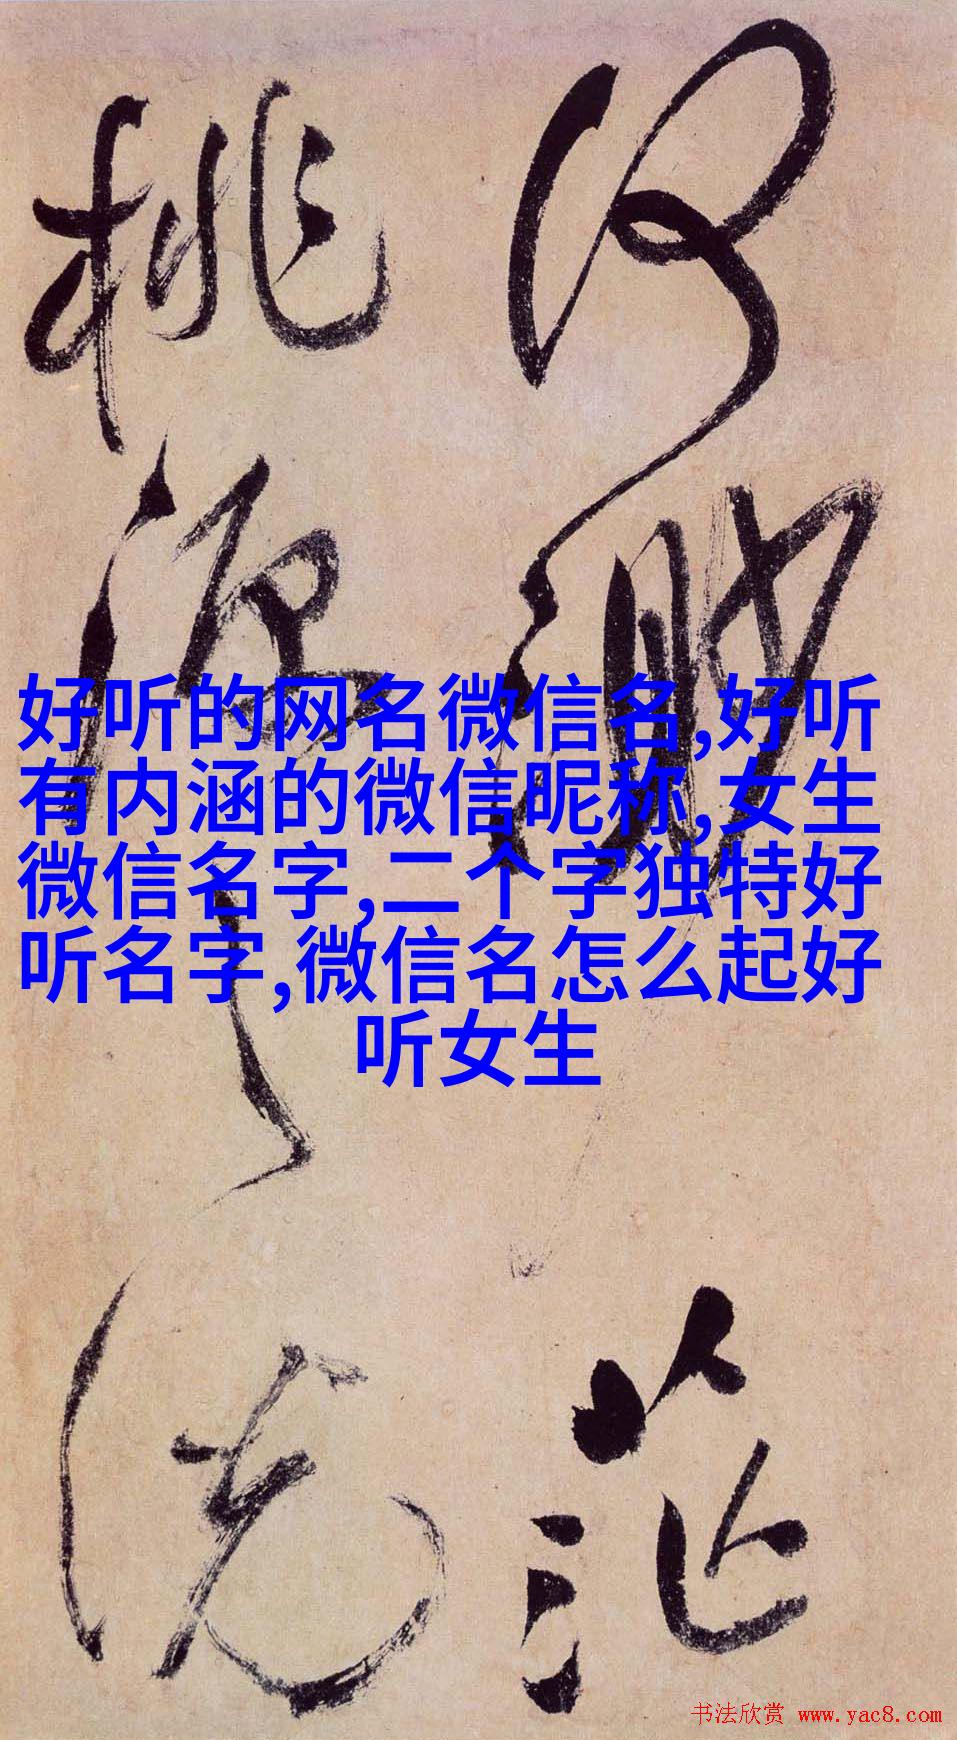 何渺茫
桃源之说
好听的网名微信名,好听
有内涵的微信昵称,女生
微信名字,二个字独特好
听名字,微信名怎么起好
听女生
书法欣赏 www.yac8.com